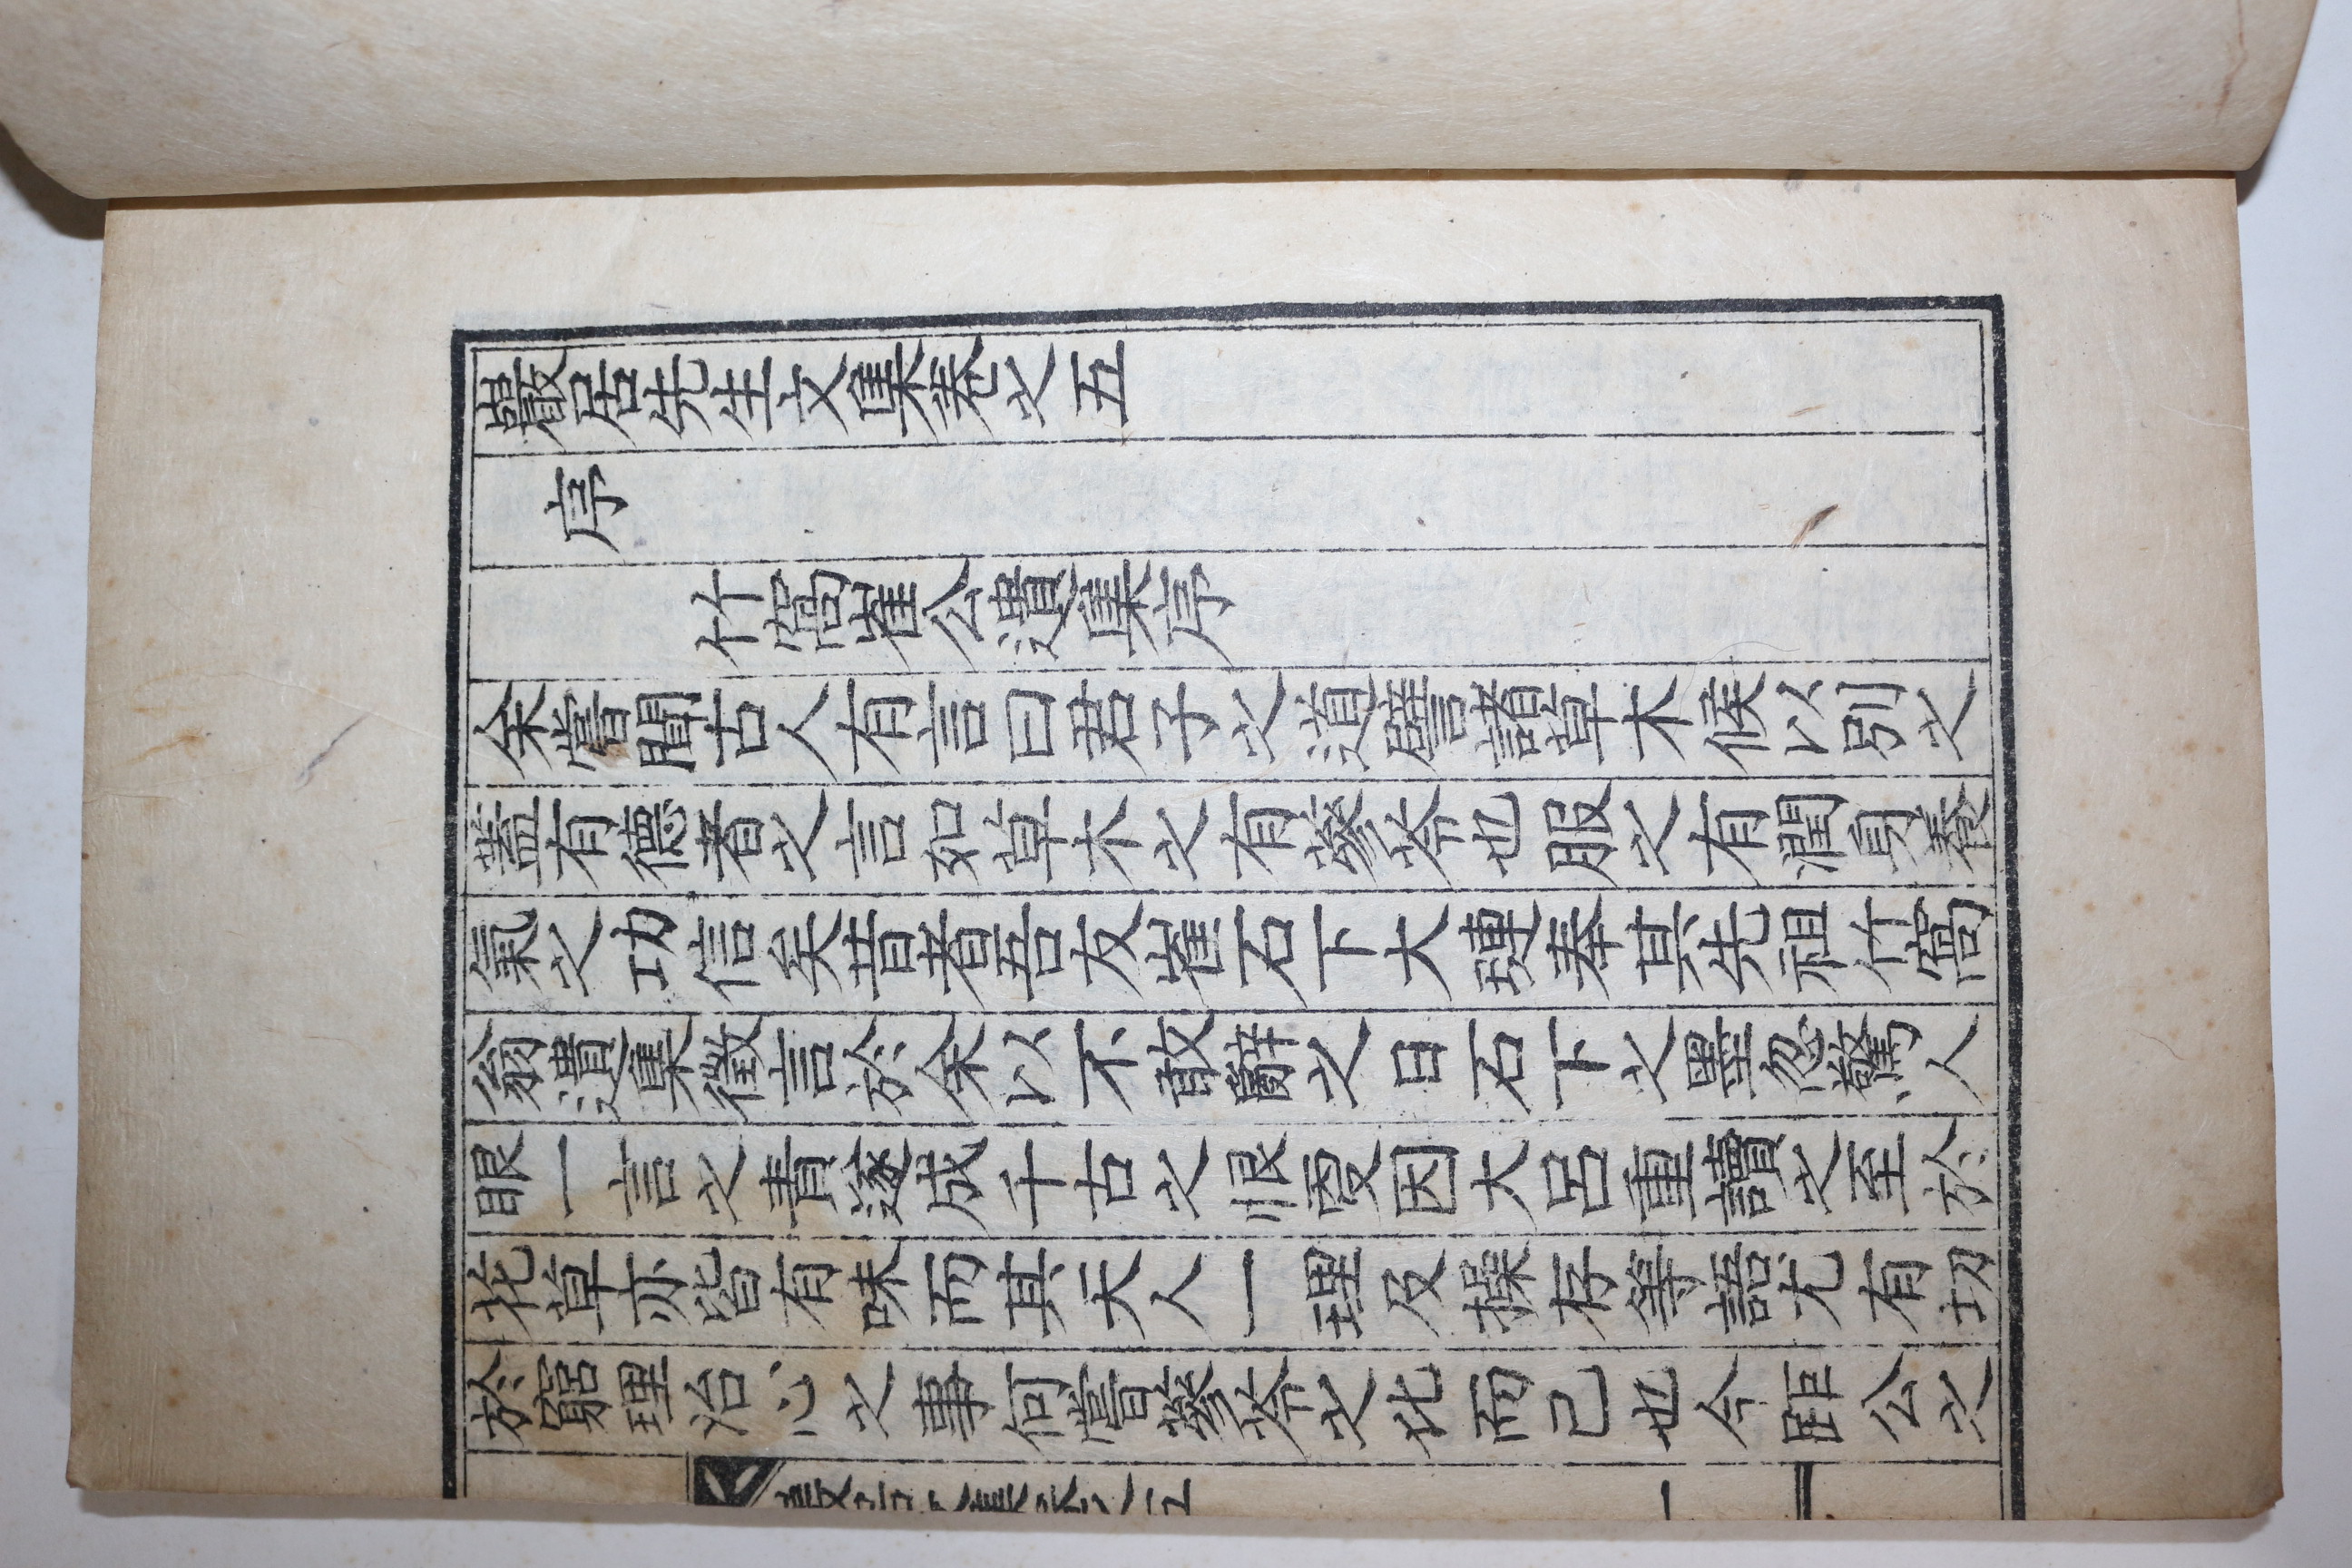 巖居先生文集卷之五
序
竹窩崔公遺集序
余嘗聞古人有言曰君子之道譬諸草木候以別之
蓋有德者之言如草木之有蔘苓也服之有潤身養
氣之功信矣昔者吾友崔石下大璉奉其先祖竹窩
翁遺集徵言於余以不敢辭之日石下之墨忽驚人
眼一言之責遂成千古之恨戛因大呂重讀之至於
花草亦皆有味而其天人一理及操存等語尤有切
於窮理治心之事何嘗蔘苓之化而已也今距公之
一